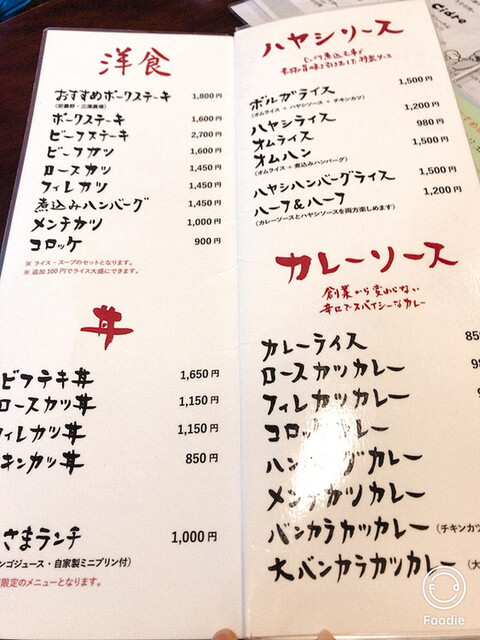 洋食
おすすめポークステーキ 1,800円
(安曇野・三澤農場)
ポークステーキ 1,600円
ビーフステーキ 2,700円
ビーフカツ 1,600円
ロースカツ 1,450円
フィレカツ 1,450円
煮込みハンバーグ 1,450円
メンチカツ 1,000円
コロッケ 900円
※ ライス・スープのセットとなります。
※ 追加100円でライス大盛にできます。
丼
ビフテキ丼 1,650円
ロースカツ丼 1,150円
フィレカツ丼 1,150円
キンカツ丼 850円
さまランチ 1,000円
ンゴジュース・自家製ミニプリン付)
限定のメニューとなります。
ハヤシソース
ボルガライス 1,500円
(オムライス + ハヤシソース + チキンカツ)
ハヤシライス 1,200円
オムライス 980円
オムハン 1,500円
(オムライス + 煮込みハンバーグ)
ハヤシハンバーグライス 1,500円
ハーフ&ハーフ 1,200円
(カレーソースとハヤシソースを両方楽しめます)
カレーソース
創業から変わらない
辛口でスパイシーなカレー
カレーライス 85
ロースカツカレー
フィレカツカレー
コロッケカレー
ハンバーグカレー
メンチカツカレー
バンカラカツカレー (チキンカツ
大バンカラカツカレー (大
Cidre
Foodie